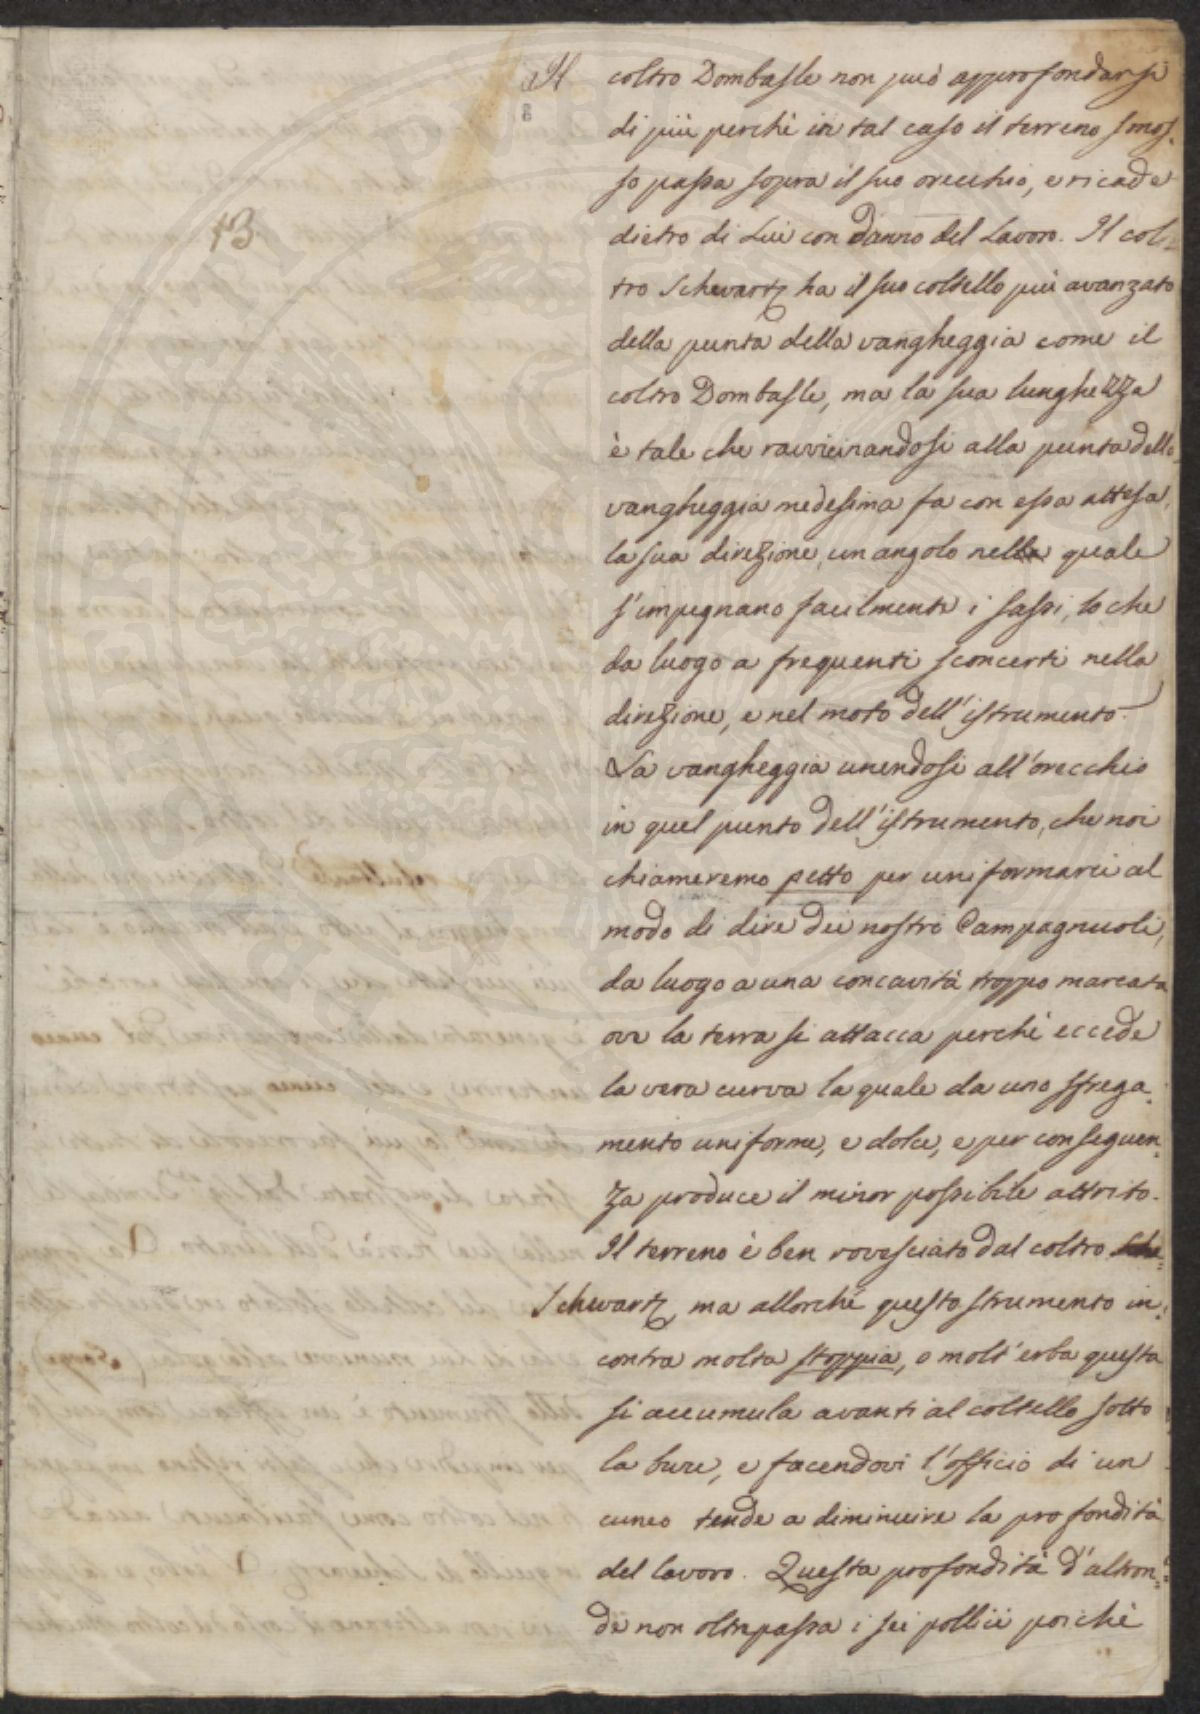 Il coltro Dombasle non può approfondarsi
di più perchè in tal caso il terreno smos-
so passa sopra il suo orecchio, e ricade
13
dietro di Lui con danno del Lavoro. Il col-
tro Schwartz ha il suo coltello più avanzato
della punta della vangheggia come il
coltro Dombasle, ma la sua lunghezza
è tale che ravvicinandosi alla punta della
vangheggia medesima fa con essa attesa,
la sua direzione, un angolo nella quale
s'impegnano facilmente i sassi, lo che
da luogo a frequenti sconcerti nella
direzione, e nel moto dell'istrumento.
La vangheggia unendosi all'orecchio
in quel punto dell'istrumento, che noi
chiameremo petto per uniformarci al
modo di dire dei nostri Campagnuoli,
da luogo a una concavità troppo marcata
ove la terra si attacca perchè eccede
la vera curva la quale da uno sfrega-
mento uniforme, e dolce, e per conseguen-
za produce il minor possibile attrito.
Il terreno è ben rovesciato dal coltro
Schwartz, ma allorchè questo strumento in-
contra molta stoppia, o molt'erba questa
si accumula avanti al coltello sotto
la bure, e facendovi l'officio di un
cuneo tende a diminuire la profondità
del lavoro. Questa profondità d'altron-
de non oltrepassa i sei pollici poichè